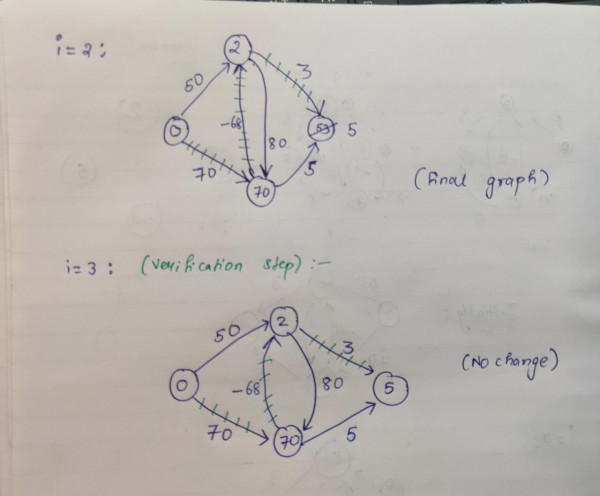 i=2:
2
50
3
0
-68
80
5
70
5
70
(Final graph)
i=3: (Verification step) :-
50
2
3
(No change)
0
-68
80
5
70
70
5